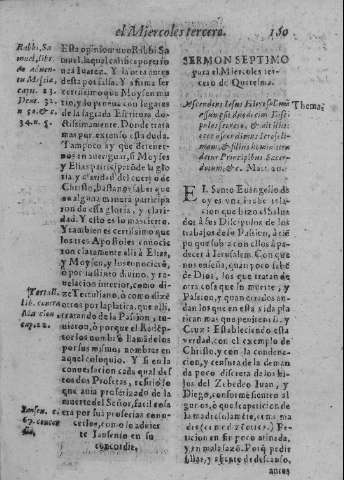 el Miercoles tercero. 160
Rabbi, Sa
muel, libr.
de aduen-
tu Messiæ,
capit. 13.
Deut. 32.
n. 50. &c.
34. n. 5.
Esta opinion tuuo Rabbi Sa
muel, la qual
antes
desta
certissimo que Moysen mu
rio, y lo prueua con lugares
de la sagrada Escritura do-
ctissimamente Donde trata
mas por extenso esta duda.
Tampoco ay que detener-
nos en aueriguar, si Moyses
y Elias participarõ de la glo
ria, y claridad del cuerpo de
Christo, bastanos saber que
en alguna manera participa
ron desta gloria, y clari-
dad. Y esto es lo mas cierto.
Y tambien es certissimo que
los tres Apostoles conocie
ron claramente alli à Elias,
y Moysen, y los conociero,
o por instinto diuino, y re-
uelacion interior, como di-
ze Tertuliano, ò como dizẽ
otros por la platica, que alli
tratando de la Passion,
uieron, ò porque el Redẽp-
tor los nombrò llamãdolos
por sus mismos nombres en
aquel coloquio. Y si en la
conuersacion cada qual des
tos dos Profetas, refirio lo
que auia profetizado de la
muerte del Señor, facil cosa
era por sus profecias cono-
cerlos, como lo aduier
te Jansenio en su
concordia.
Tertull.
lib. contra
Marcion
cap. 22.
Jansen. c.
67. concor
SERMON SEPTIMO
para el Miercoles ter-
cero de Quaresma.
Thema.
Ascendens Iesus Hierosolimã
assumpsit duodecim Disci-
pulos secreto, & ait illis:
ecce ascendimus Ierosoli-
mam, & filius hominis tra
detur Principibus Sacer-
dotum, &c. Mat. 20.
EL Santo Euangelio de
oy es vna
cion que hizo el Salua
dor à sus Discipulos de los
trabajos de su Passion, à tiẽ
po que subia con ellos à pa-
decer à Jerusalem. Con que
nos enseña, quan poco sabẽ
de Dios, los que tratan de
otra cosa que su muerte, y
Passion, y quan errados an-
dan los que en esta vida pla
tican mas que penitencia, y
Cruz: Estableciendo esta
verdad, con el exemplo de
Christo, y con la condena-
cion, y censura de la deman
da poco discreta de los hi-
jos del Zebedeo Iuan, y
Diego, conforme sienten al
gunos, ò que la peticion de
la madre
dre
ticion en si fue poco atinada,
y en mala sazõ. Porq̃ pedir
sillas, y assiento de descanso,
antes